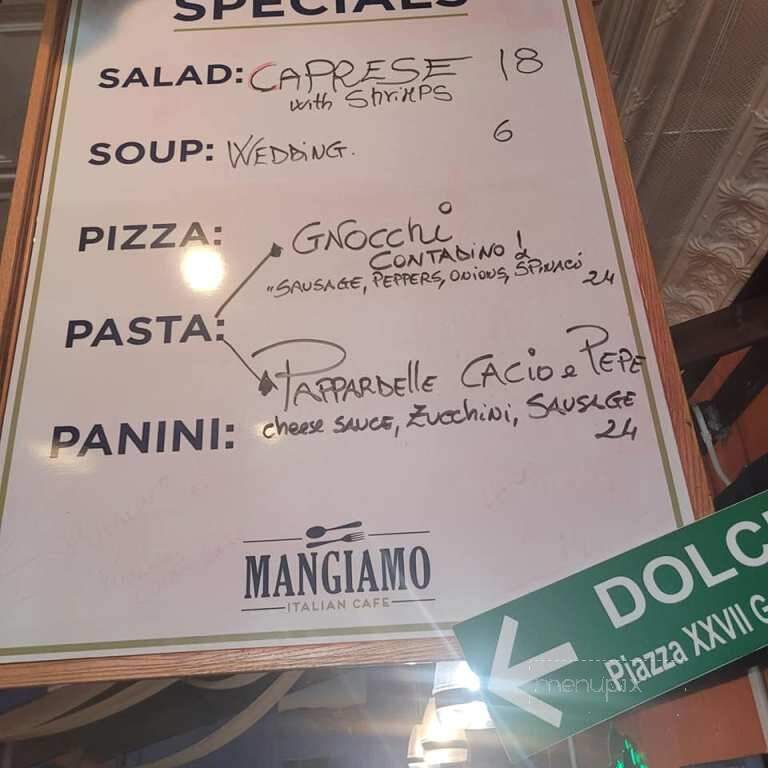 SPECIALS
SALAD: CAPRESE 18
with SHRIMPS
SOUP: WEDDING. 6
PIZZA:
GNOCCHI
CONTADINO!
"SAUSAGE, PEPPERS, ONIONS, SPINACI
24
PASTA:
PAPPARDELLE CACIO e PEPE
cheese SAUCE, ZUCCHINI, SAUSAGE
24
PANINI:
MANGIAMO
ITALIAN CAFE
DOLC
Piazza XXVII G
menupix